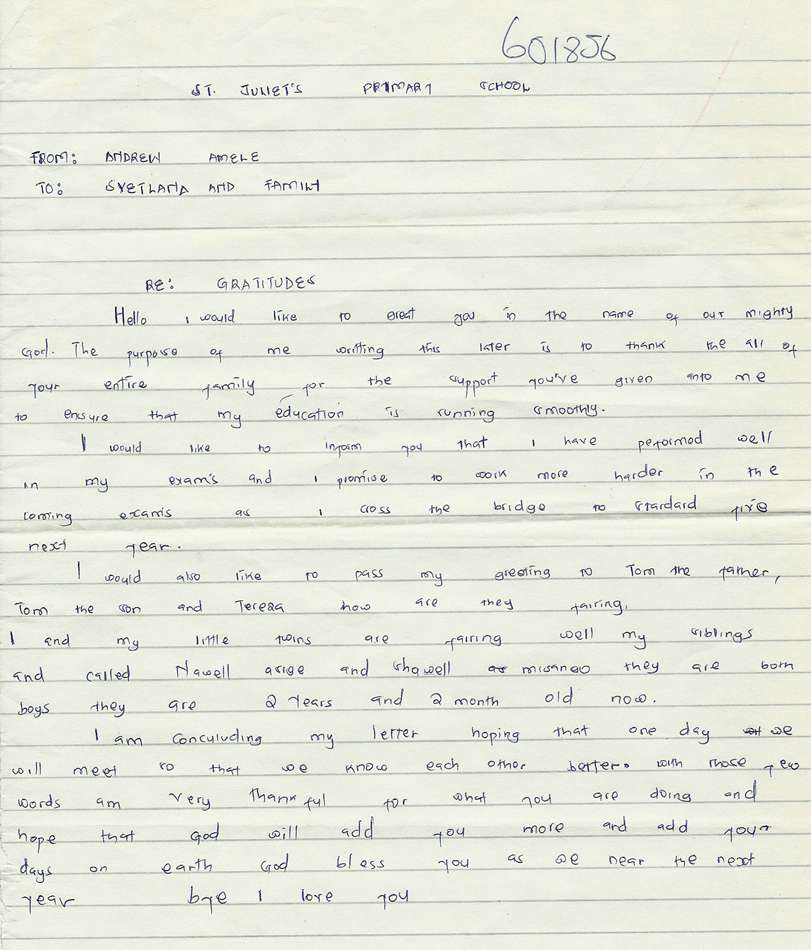 601856
ST. JULIET'S PRIMARY SCHOOL
FROM: ANDREW AMELE
TO: SVETLANA AND FAMILY
RE: GRATITUDES
Hello i would like to great you in the name of our mighty
God. The purpose of me writting this later is to thank the all of
your entire family for the support you've given into me
to ensure that my education is running smoothly.
I would like to inform you that i have peformed well
in my exam's and i promise to work more harder in the
coming exams as i cross the bridge to standard five
next year.
I would also like to pass my greeting to Tom the father,
Tom the son and Tereza how are they fairing.
I and my little twins are fairing well my siblings
and called Nawell asige and shawell misango they are born
boys they are 2 years and 2 month old now.
I am concyluding my letter hoping that one day we
will meet so that we know each other better. with those few
words am very thankful for what you are doing and
hope that God will add you more and add your
days on earth God bless you as we near the next
year bye I love you